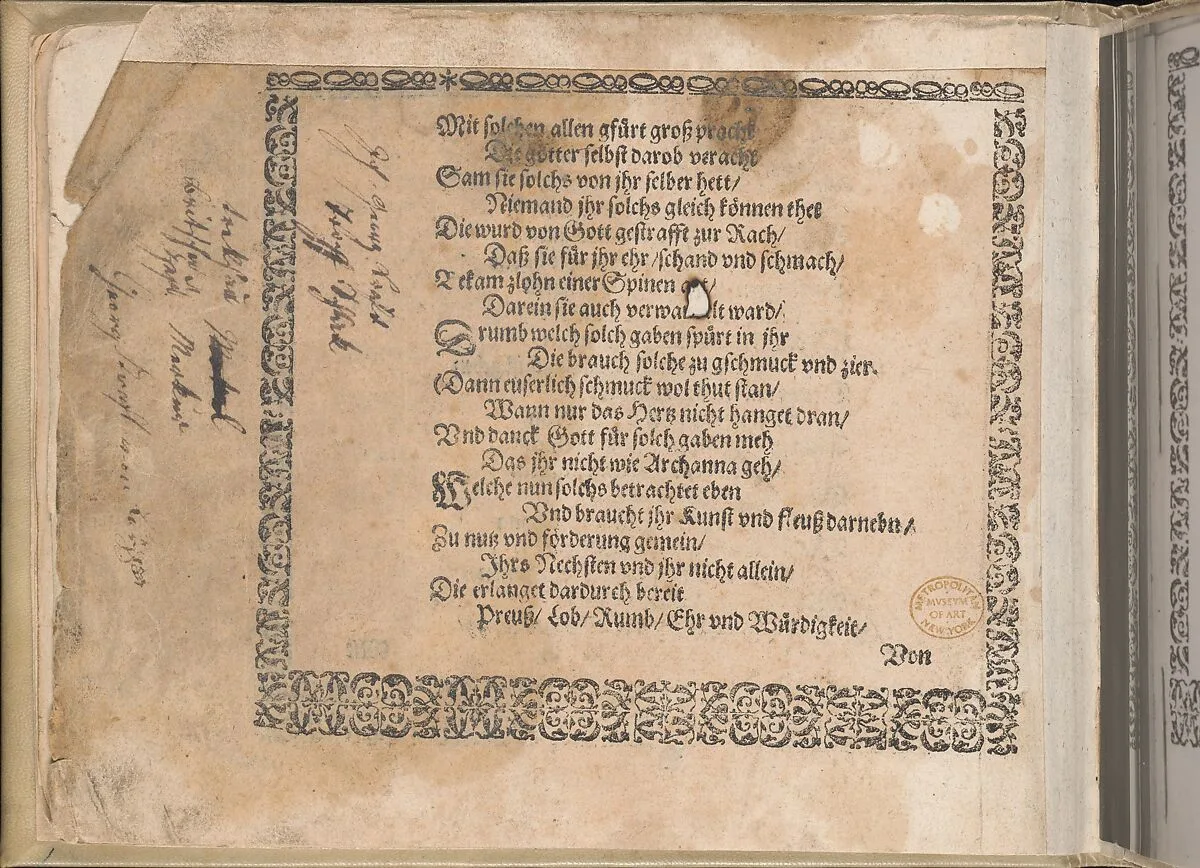 Mit solchen allen gfürt groß pracht
Die götter selbst darob veracht
Sam sie solchs von jhr selber hett/
Niemand jhr solchs gleich können thet
Die wurd von Gott gestrafft zur Rach/
Daß sie für jhr ehr/schand vnd schmach/
Bekam zlohn einer Spinen art/
Darein sie auch verwandlt ward/
Drumb welch solch gaben spürt in jhr
Die brauch solche zu gschmuck vnd zier.
(Dann euserlich schmuck wol thut stan/
Wann nur das Hertz nicht hanget dran/
Vnd danck Gott für solch gaben meh
Das jhr nicht wie Archanna geh/
Welche nun solchs betrachtet eben
Vnd braucht jhr Kunst vnd fleuß darnebn/
Zu nutz vnd förderung gemein/
Jhrs Nechsten vnd jhr nicht allein/
Die erlanget dardurch bereit
Preuß/ Lob/ Rumb/ Ehr vnd Würdigkeit/
Von
METROPOLITAN
MVSEVM
OF ART
NEW YORK